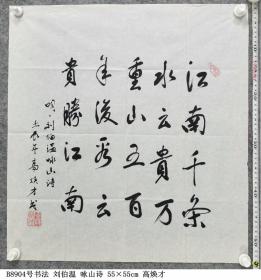 江南千条
水云贵万
重山五百
年后看云
贵胜江南
明·刘伯温咏山诗
高焕才书
B8904号书法 刘伯温 咏山诗 55×55cm 高焕才